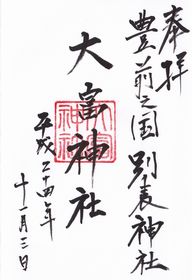 奉拝
豊前之国 別表神社
大富神社
平成二十四年
十一月三日